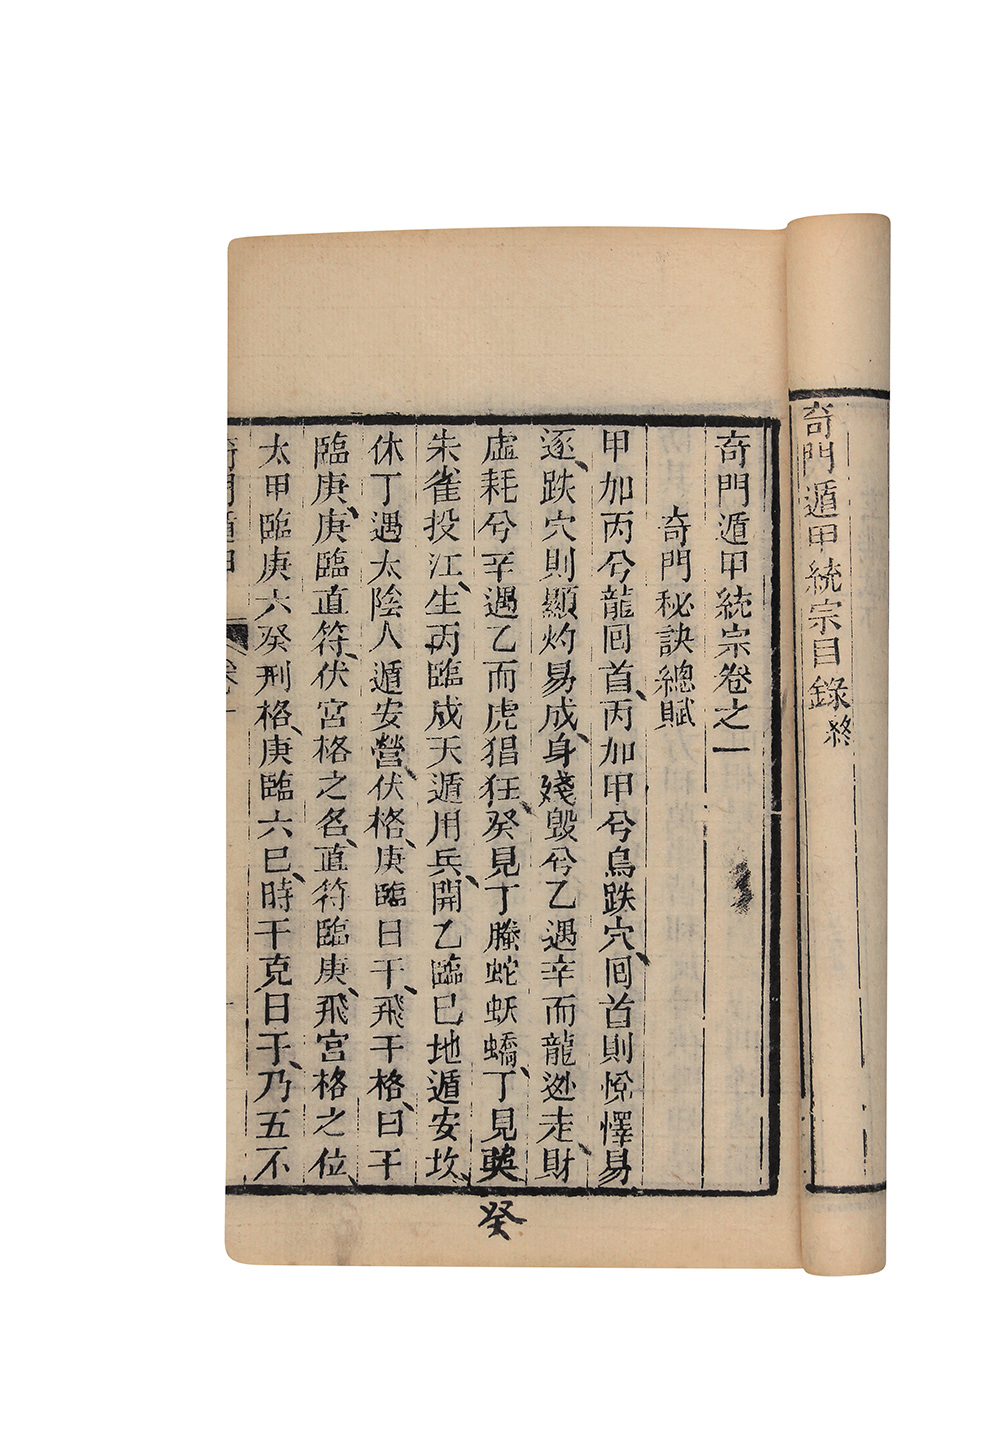 奇門遁甲統宗目錄終
奇門遁甲統宗卷之一
奇門秘訣總賦
甲加丙兮龍囘首、丙加甲兮鳥跌穴、囘首則悅懌易
逐、跌穴則顯灼易成、身殘毀兮乙遇辛而龍迯走、財
虛耗兮辛遇乙而虎猖狂、癸見丁螣蛇妖蟜、丁見
癸
朱雀投江、生丙臨戍天遁用兵、開乙臨巳地遁安坟、
休丁遇太陰人遁安營、伏格、庚臨日干、飛干格、日干
臨庚、庚臨直符、伏宮格之名、直符臨庚、飛宮格之位、
太甲臨庚六癸刑格、庚臨六巳、時干克日于、乃五不
奇門遁甲 卷一